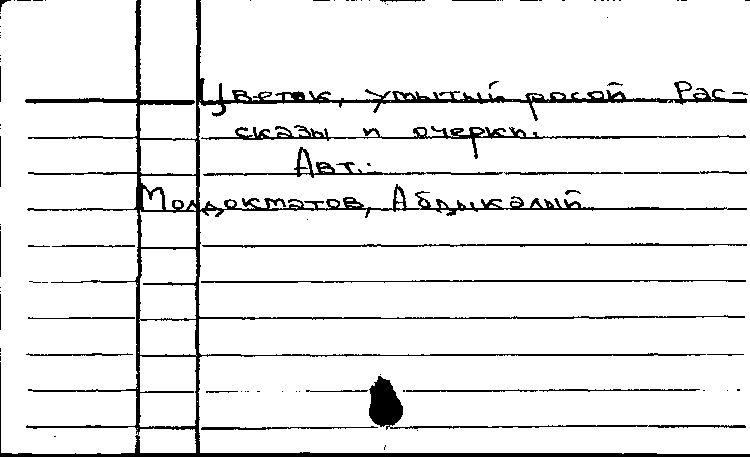 Цветок, умытый росой Рас-
сказы и очерки.
Авт.:
Молдокматов, Абдыкалый